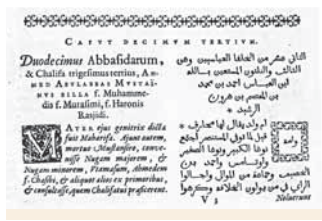 CAPUT DECIMUM TERTIUM.
Duodecimus Abbasidarum,
& Chalifa trigesimus tertius, AH-
MED ABULABBAS MUSTAI-
NUS BILLA f. Muhamme-
dis f. Mutasimi, f. Haronis
Rasjidi.
MATER ejus genitrix dicta
fuit Mahariſa. Ajunt autem,
mortuo Muſtanſiro, conve-
niſſe Nugam majorem, &
Nugam minorem, Utamſum, Ahmedem
f. Chaſibi, & aliquot alios ex primoribus,
& conſultaſſe, quem Chalifatui præficerent.
الثاني عشر من الخلفا العباسيين وهن
الثالث والثلثون المستعين بـالله
ابي العباس احمد بن محمد
بن المعتصم بن هرون
الرشيد
ام ولد يقال لها مخارق
قيل لما توفي المستنصر اجتمع
نوغا الكبير ونوغا الصغير
واوتامس واحمد بن
الخصيب وجماعة من الموال واجالوا
الراي في من يولون الخلافة وكرهوا
V 3
Noluerunt